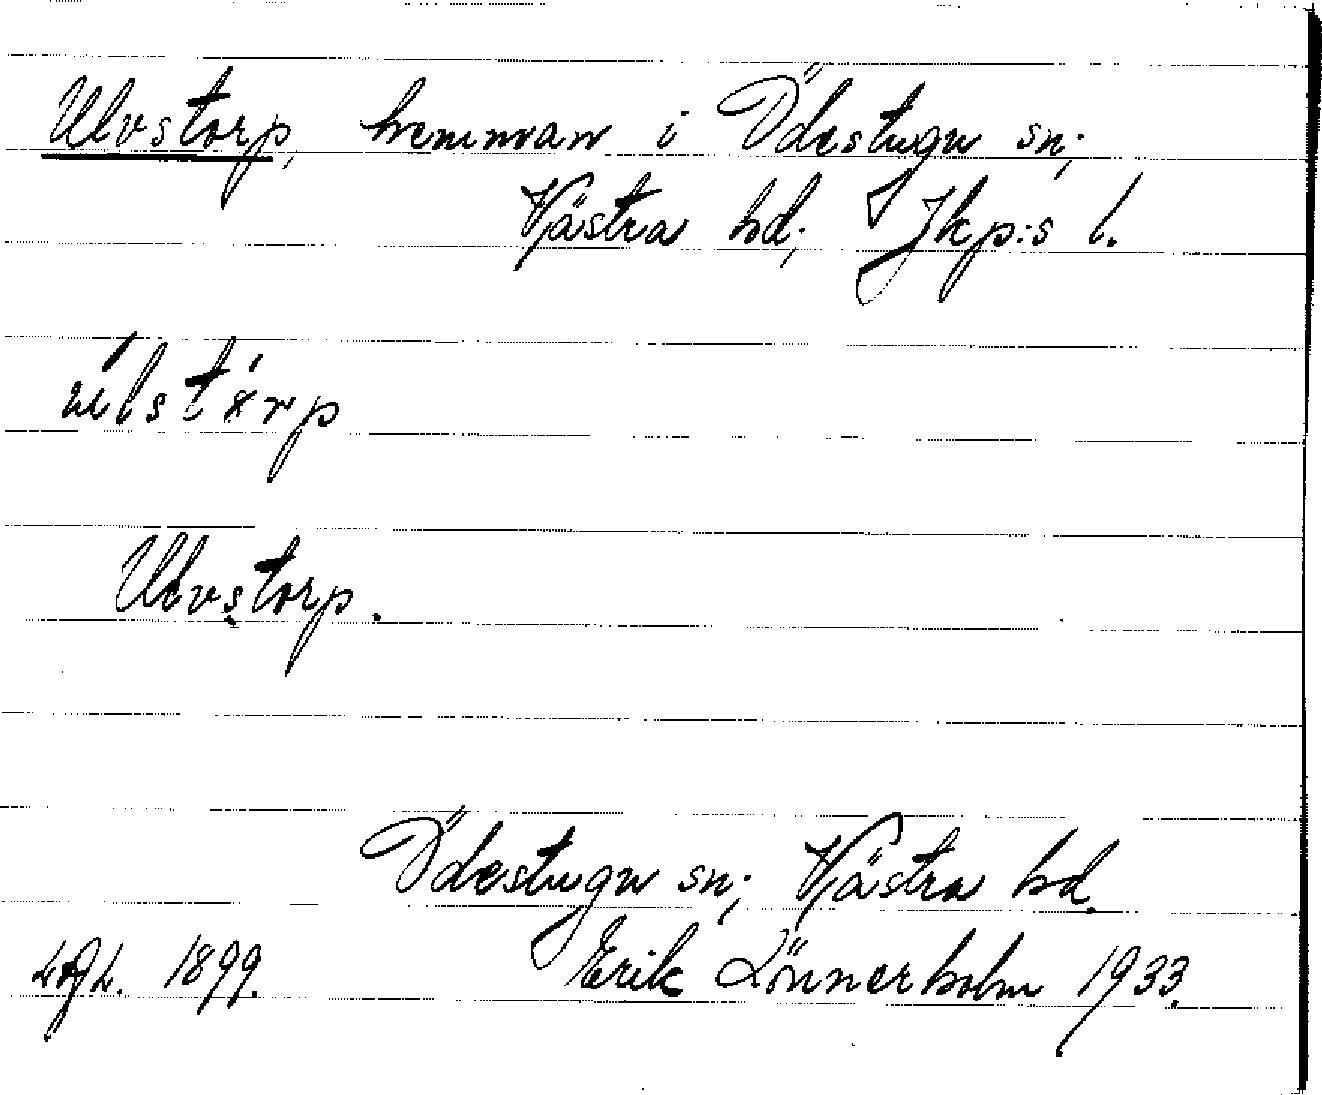 Ulvstorp, hemman i Ödestugu sn;
Västra hd; Jkp:s l.
Ulvstorp.
Ödestugu sn; Västra hd.
1899. Erik Lönnerholm 1933.